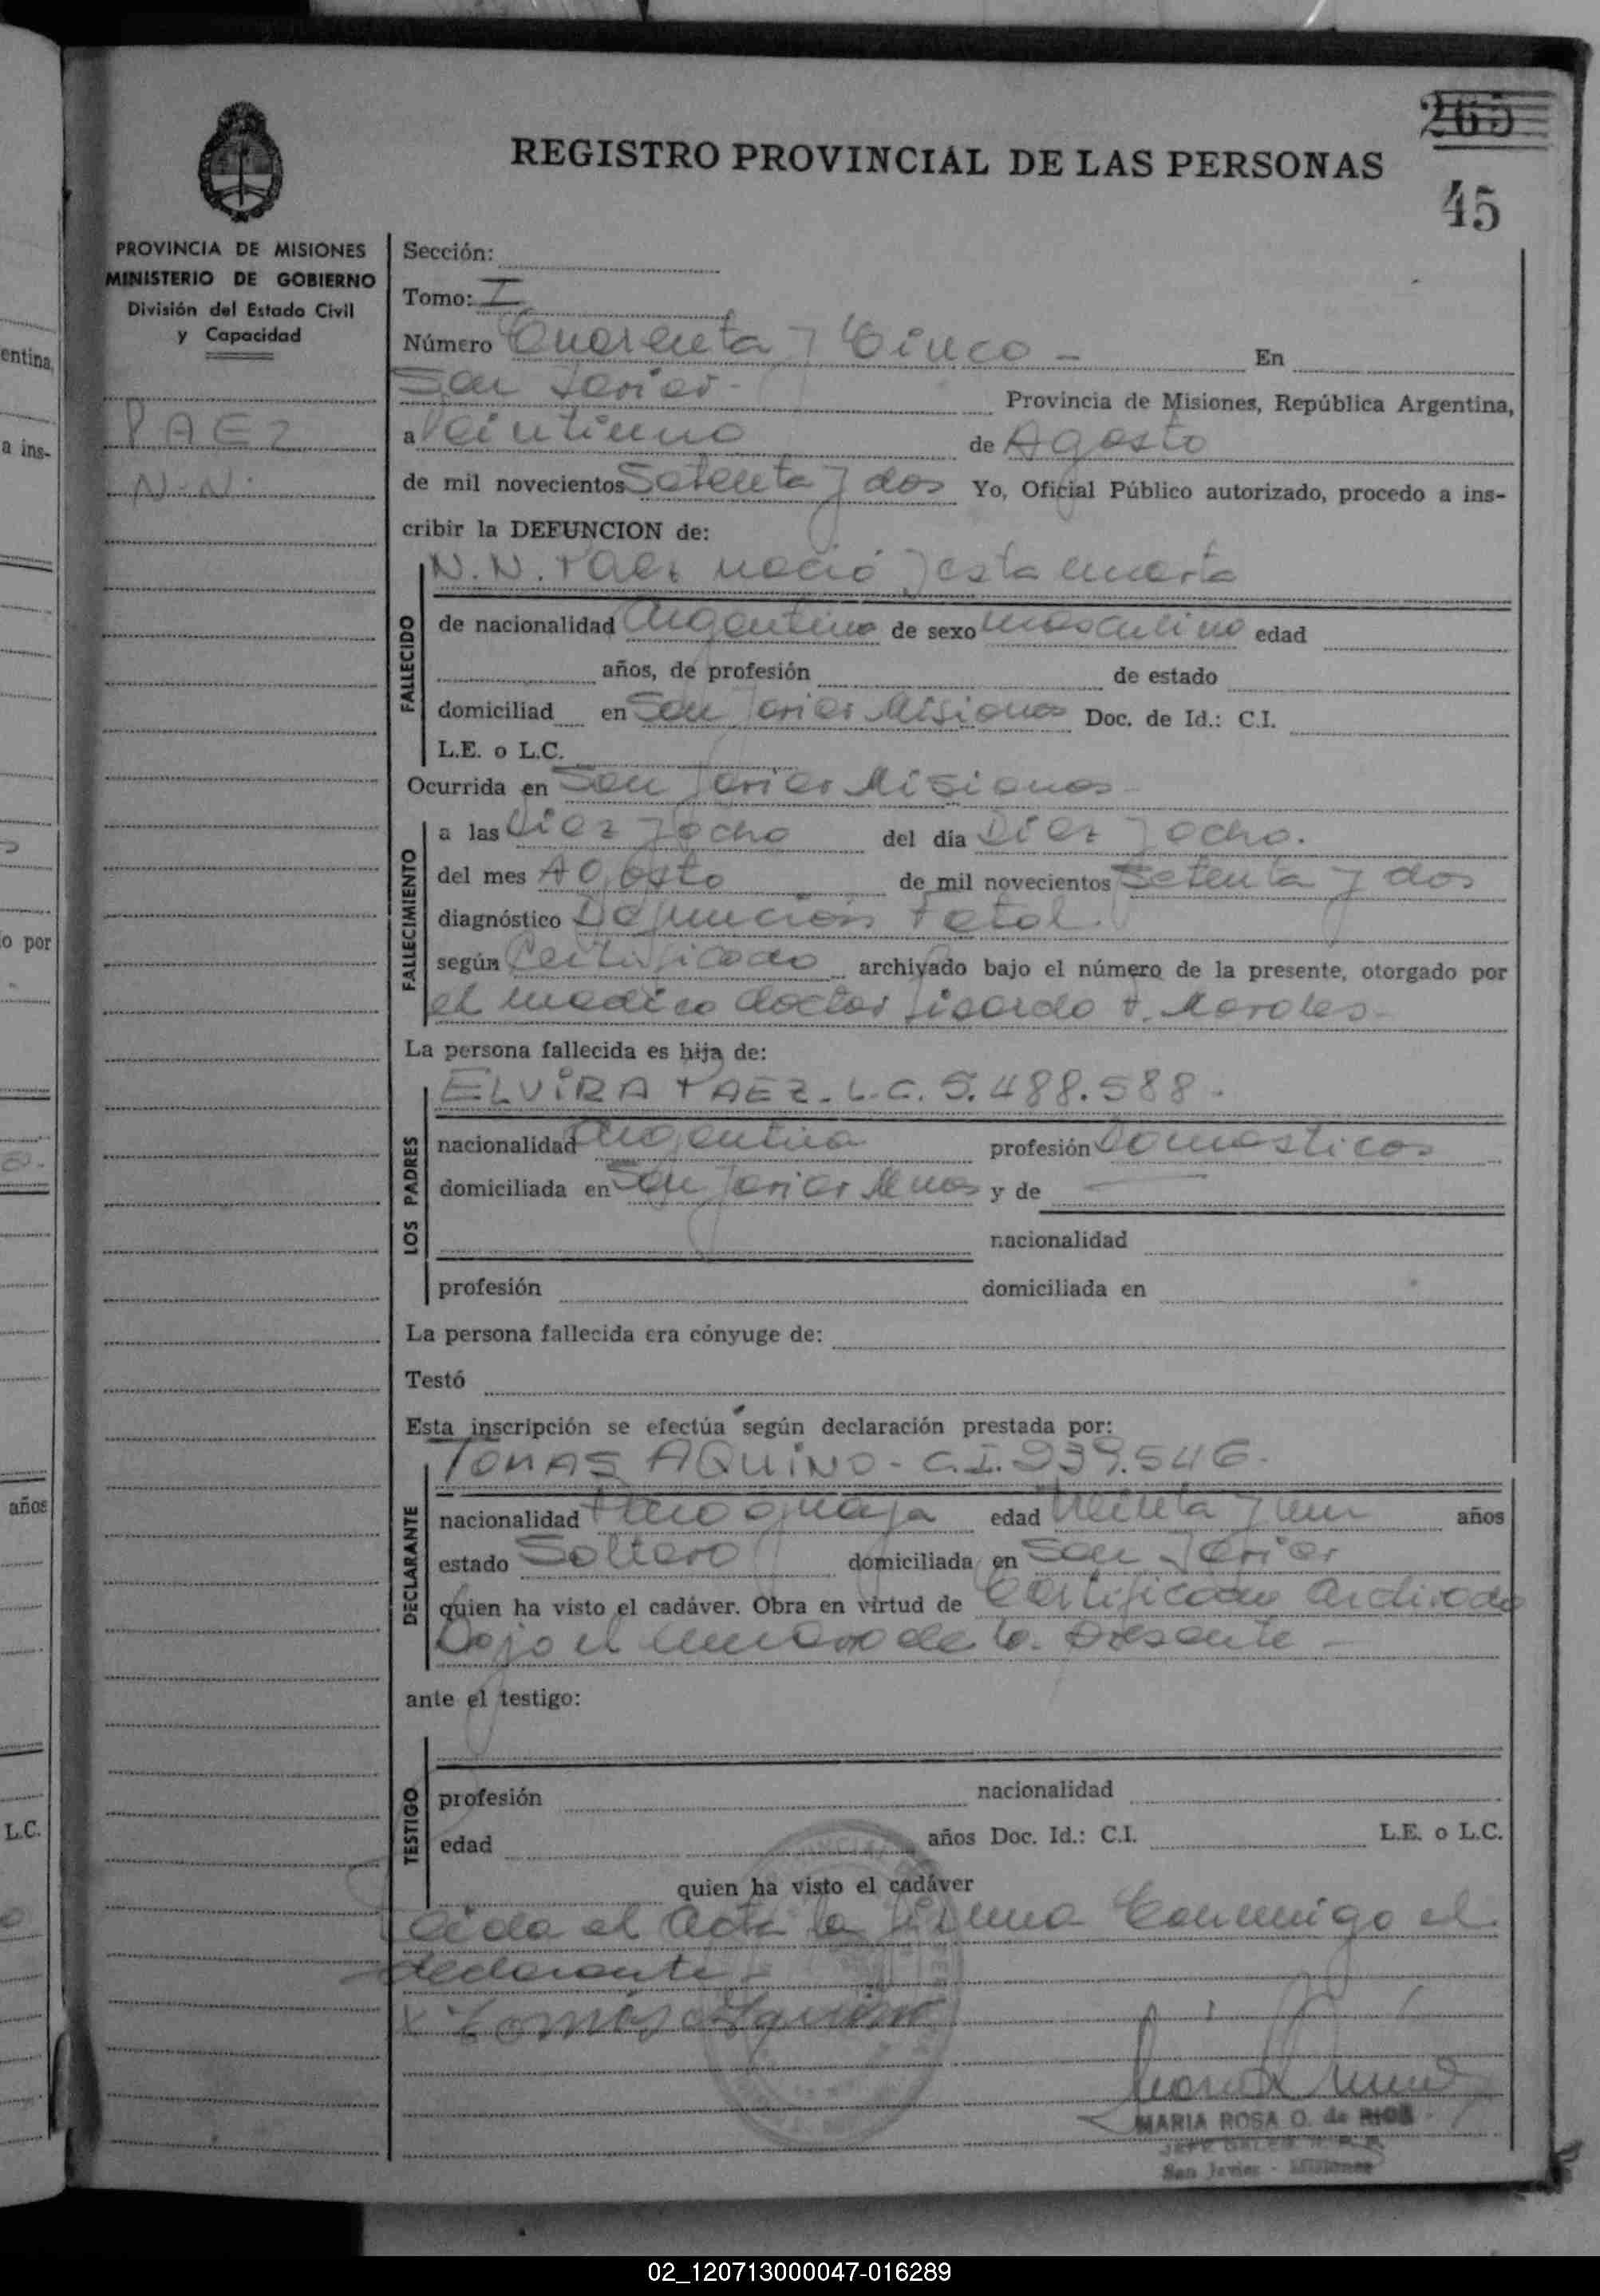 265
REGISTRO PROVINCIAL DE LAS PERSONAS
45
PROVINCIA DE MISIONES
MINISTERIO DE GOBIERNO
División del Estado Civil
y Capacidad
PAEZ
N.N.
Sección:
Tomo: I
Número Cuarenta y Cinco - En
San Javier - Provincia de Misiones, República Argentina,
a Veintiuno de Agosto
de mil novecientos Setenta y dos Yo, Oficial Público autorizado, procedo a ins-
cribir la DEFUNCION de:
N.N. Paez nació y esta muerta
FALLECIDO
de nacionalidad Argentino de sexo masculino edad
años, de profesión de estado
domiciliad en San Javier Misiones Doc. de Id.: C.I.
L.E. o L.C.
Ocurrida en San Javier Misiones -
FALLECIMIENTO
a las Diez y ocho del día Diez y ocho.
del mes Agosto de mil novecientos Setenta y dos
diagnóstico Defunción Fetal.
según Certificado archivado bajo el número de la presente, otorgado por
el medico doctor Lisardo Morales -
La persona fallecida es hija de:
LOS PADRES
ELVIRA PAEZ - L.C. 5.488.588 -
nacionalidad Argentina profesión Domesticos
domiciliada en San Javier Mnes y de —
nacionalidad
profesión domiciliada en
La persona fallecida era cónyuge de:
Testó
Esta inscripción se efectúa según declaración prestada por:
DECLARANTE
TOMAS AQUINO - C.I. 939.546 -
nacionalidad Paraguaya edad Treinta y un años
estado Soltero domiciliada en San Javier
quien ha visto el cadáver. Obra en virtud de Certificado archivado
bajo el numero de la presente -
ante el testigo:
TESTIGO
profesión nacionalidad
edad años Doc. Id.: C.I. L.E. o L.C.
quien ha visto el cadáver
Leida el Acta la firma Conmigo el
declarante -
x Tomás Aquino
MARIA ROSA O. de RIOS
San Javier - Misiones
entina,
a ins-
o por
años
L.C.
02_120713000047-016289